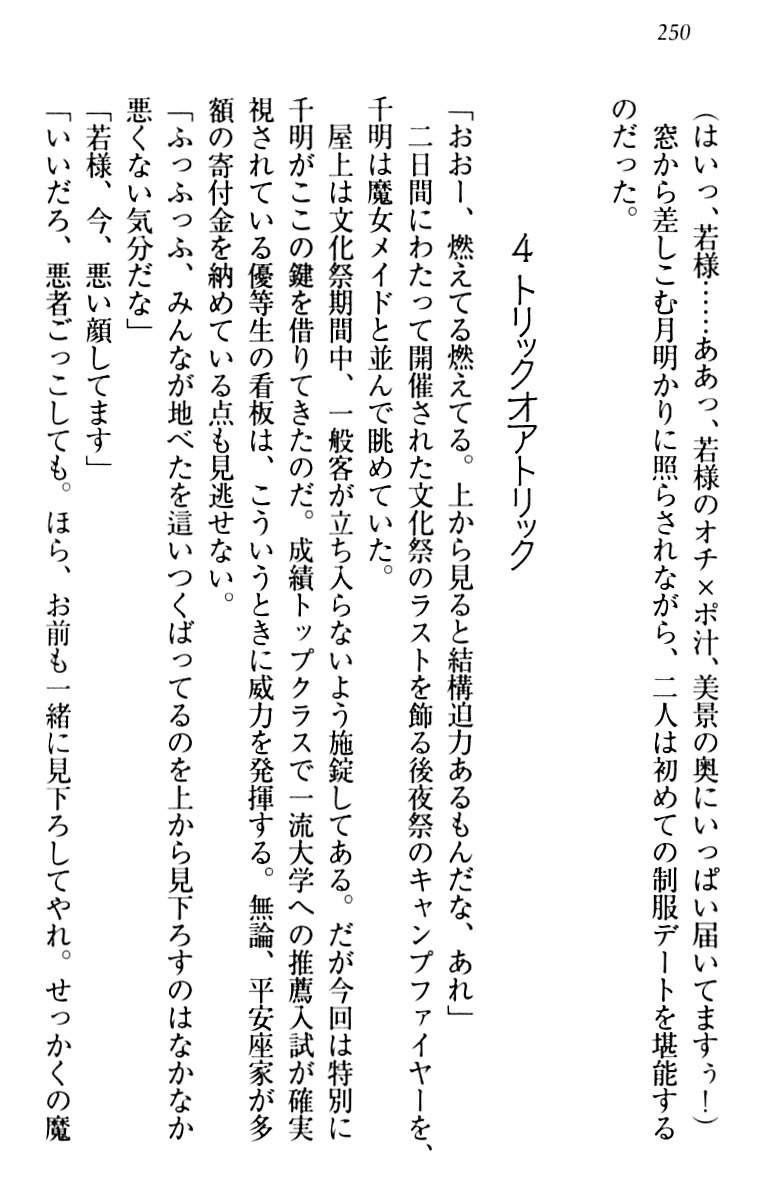 250
窓から差しこむ月明かりに照らされながら、二人は初めての制服デートを堪能する
のだった。
4 トリックオアトリック
「おおー、燃えてる燃えてる。上から見ると結構迫力あるもんだな、あれ」
二日間にわたって開催された文化祭のラストを飾る後夜祭のキャンプファイヤーを、
千明は魔女メイドと並んで眺めていた。
屋上は文化祭期間中、一般客が立ち入らないよう施錠してある。だが今回は特別に
千明がここの鍵を借りてきたのだ。成績トップクラスで一流大学への推薦入試が確実
視されている優等生の看板は、こういうときに威力を発揮する。無論、平安座家が多
額の寄付金を納めている点も見逃せない。
「ふっふっふ、みんなが地べたを這いつくばってるのを上から見下ろすのはなかなか
悪くない気分だな」
「若様、今、悪い顔してます」
「いいだろ、悪者ごっこしても。ほら、お前も一緒に見下ろしてやれ。せっかくの魔